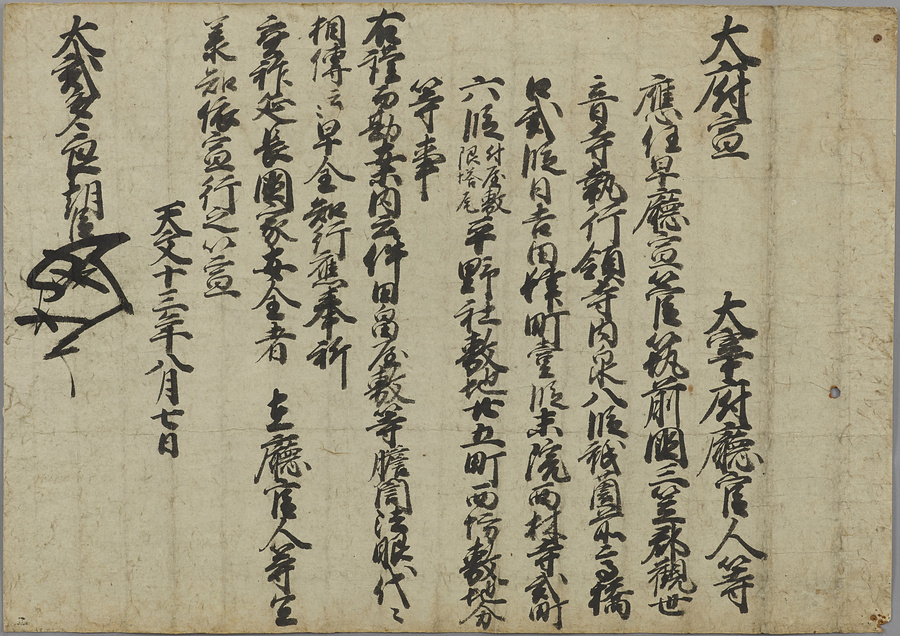 大府宣　大宰府廳官人等
應任早廳宣管筑前國三笠郡觀世
音寺執行領寺内泉八段祇園前高橋
口貳段日吉田㯃町壹段末院西村寺貳町
六段付屋敷限塔尾平野社敷地廿五町西坊敷地分
等事
右謹而勘案内云件田畠屋敷等膽筒法眼代々
相傳云早全知行應奉祈
宝祚延長國家安全者　在廳官人等宜
承知依宣行之以宣
天文十三年八月七日
大貳多々良朝臣